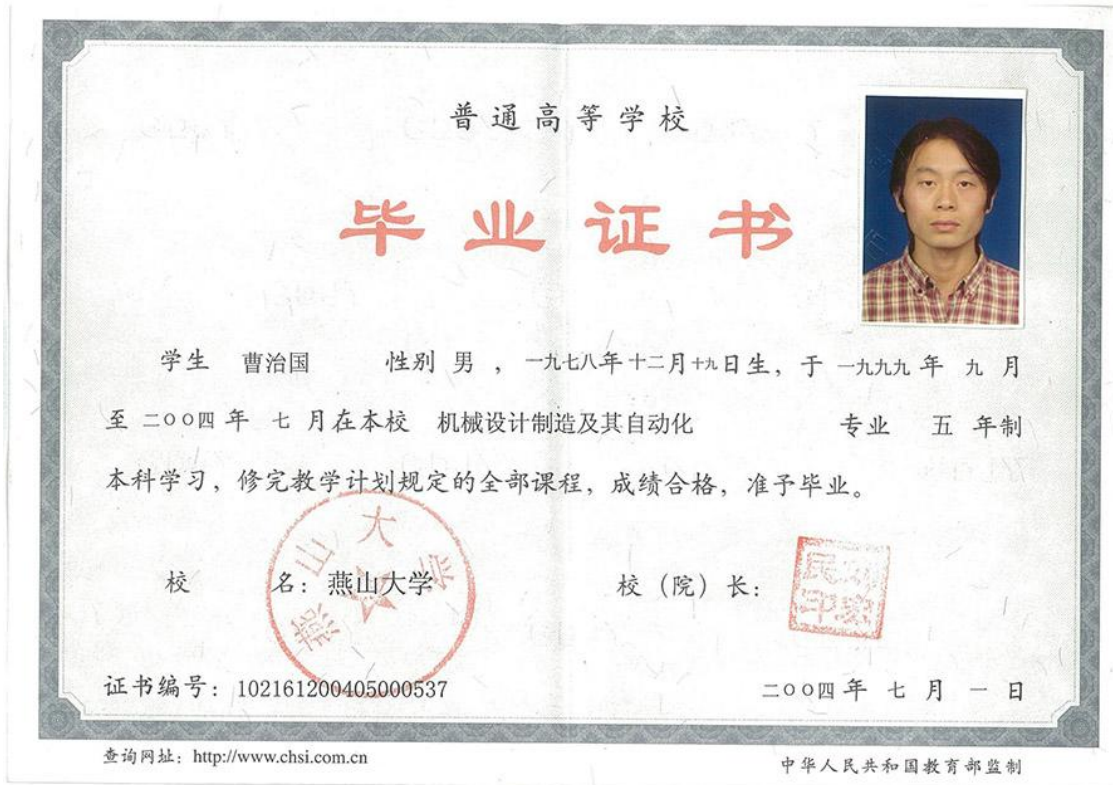 普通高等学校
毕业证书
学生 曹治国 性别 男 ， 一九七八年十二月十九日生，于 一九九九 年 九 月
至 二〇〇四 年 七 月在本校 机械设计制造及其自动化 专业 五 年制
本科学习，修完教学计划规定的全部课程，成绩合格，准予毕业。
燕山大学
校 名：燕山大学 校（院）长：
证书编号：102161200405000537 二〇〇四 年 七 月 一 日
查询网址：http://www.chsi.com.cn 中华人民共和国教育部监制